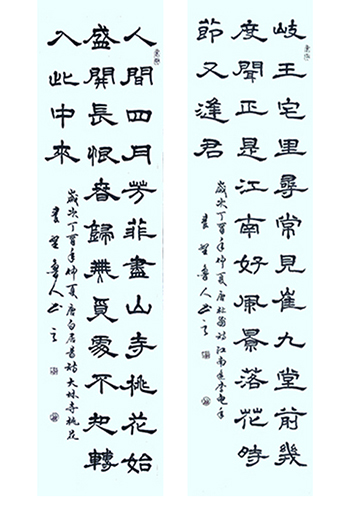 岐王宅里尋常見崔九堂前幾
度聞正是江南好風景落花時
節又逢君
歲次丁酉年仲夏唐杜甫詩江南逢李龜年
人間四月芳菲盡山寺桃花始
盛開長恨春歸無覓處不知轉
入此中來
歲次丁酉年仲夏唐白居易詩大林寺桃花